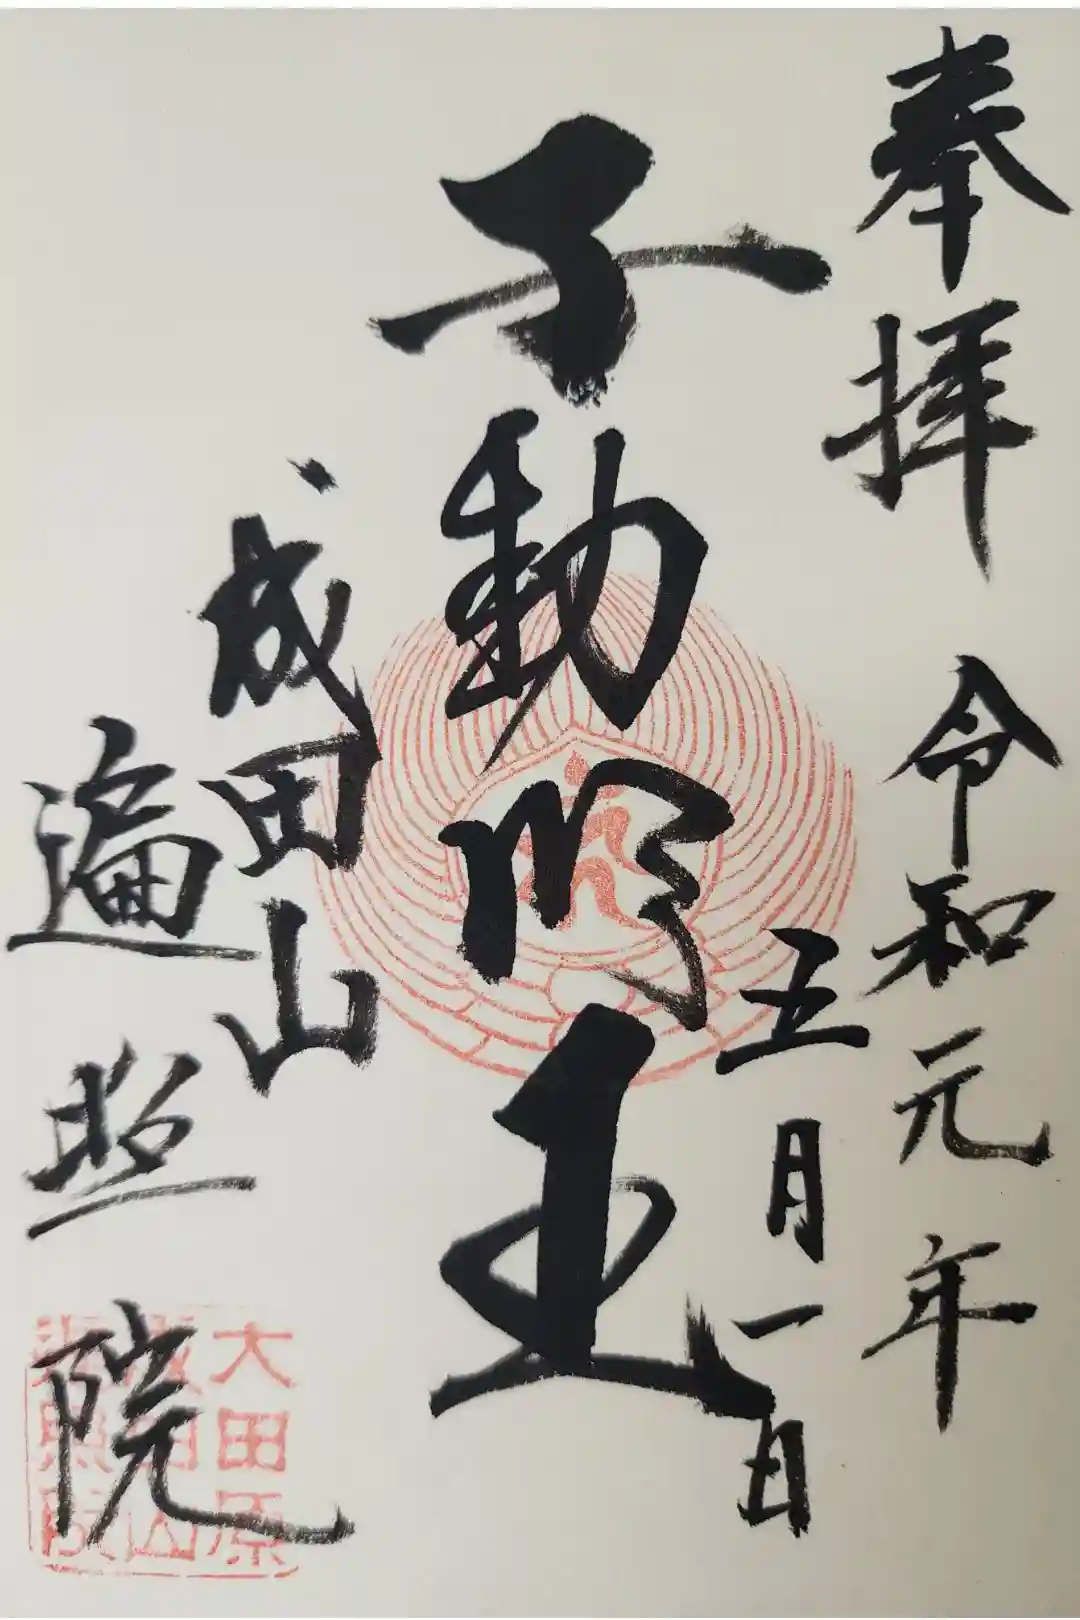 奉拝
令和元年
五月一日
不動明王
成田山
遍照院
大田原
成田山
遍照院